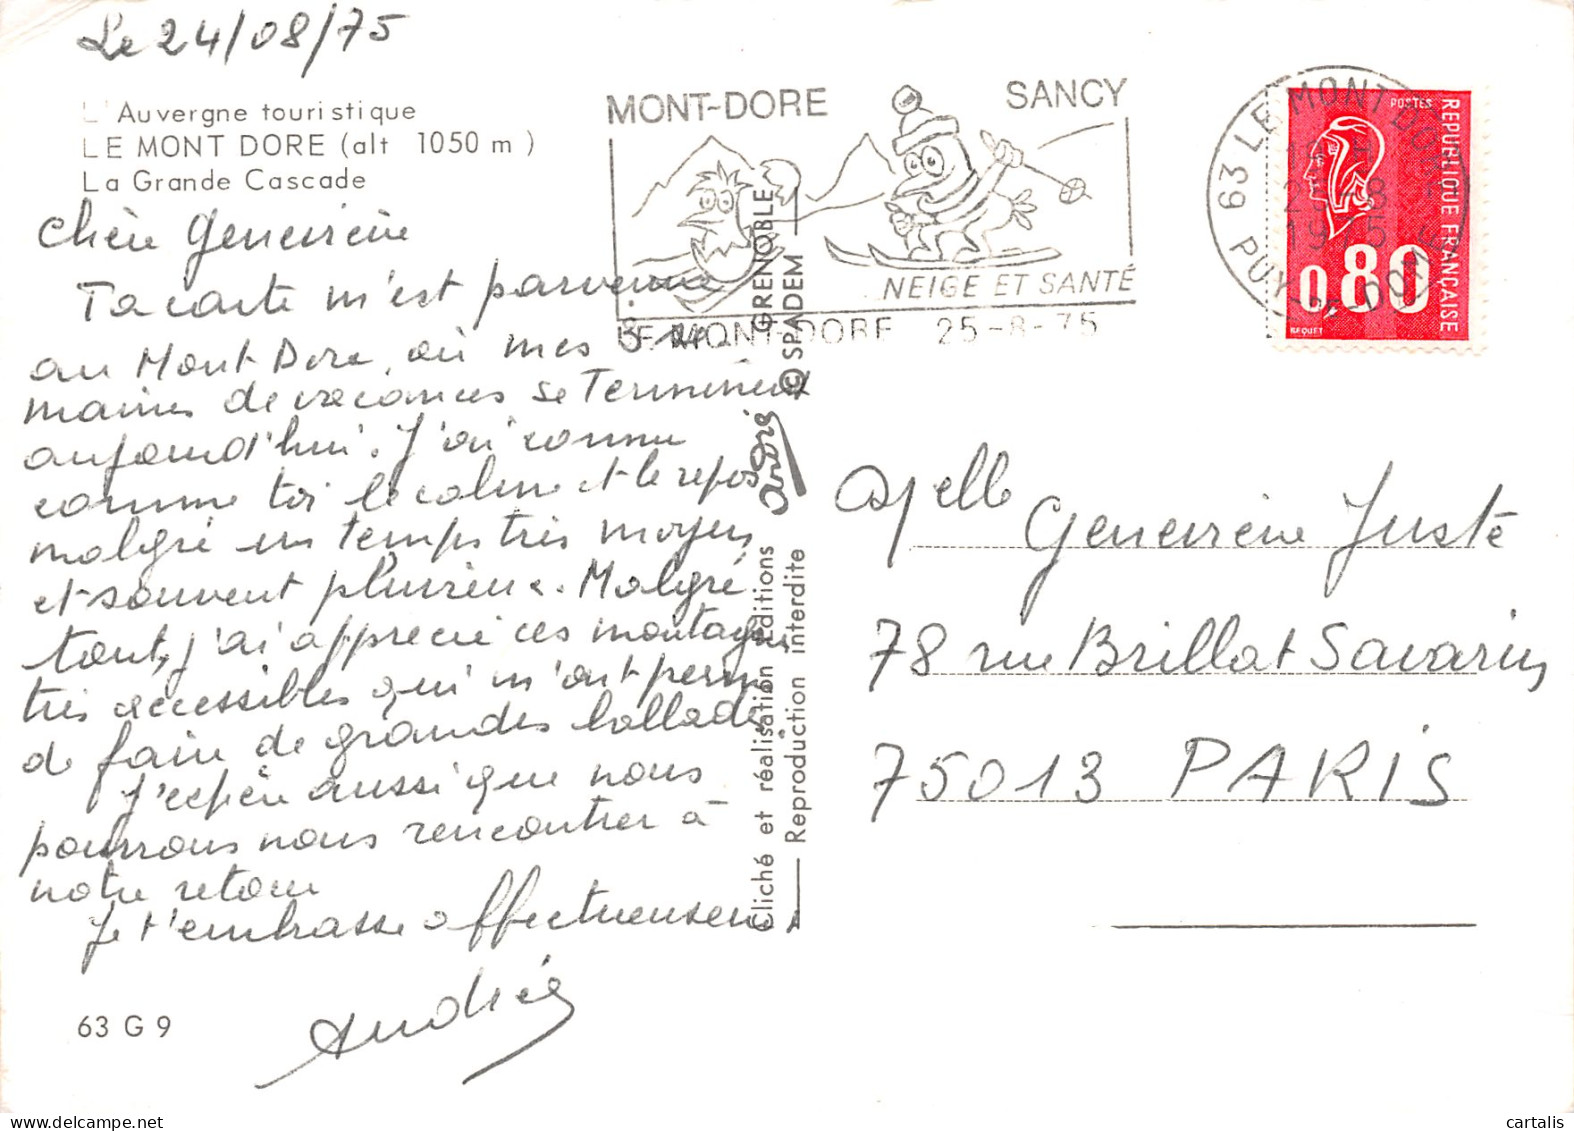 Le 24/08/75
L'Auvergne touristique
LE MONT DORE (alt 1050 m)
La Grande Cascade
Chère Geneviève
Ta carte m'est parvenue
au Mont Dore, où mes 3 se-
maines de vacances se terminent
aujourd'hui. J'ai connu
comme toi le calme et le repos
malgré un temps très moyen
et souvent pluvieux. Malgré
tout, j'ai apprécié ces montagnes
très accessibles qui m'ont permis
de faire de grandes ballades
J'espère aussi que nous
pourrons nous rencontrer à
notre retour
Je t'embrasse affectueusement
Andrée
63 G 9
MONT-DORE SANCY
NEIGE ET SANTÉ
LE MONT-DORE 25-8-75
Cliché et réalisation éditions André GRENOBLE
Reproduction interdite © SPADEM
63 LE MONT DORE
25-8
1975
PUY-DE-DOME
POSTES
REPUBLIQUE FRANÇAISE
0,80
BEQUET
Geneviève Juste
78 rue Brillat Savarin
75013 PARIS
cartalis